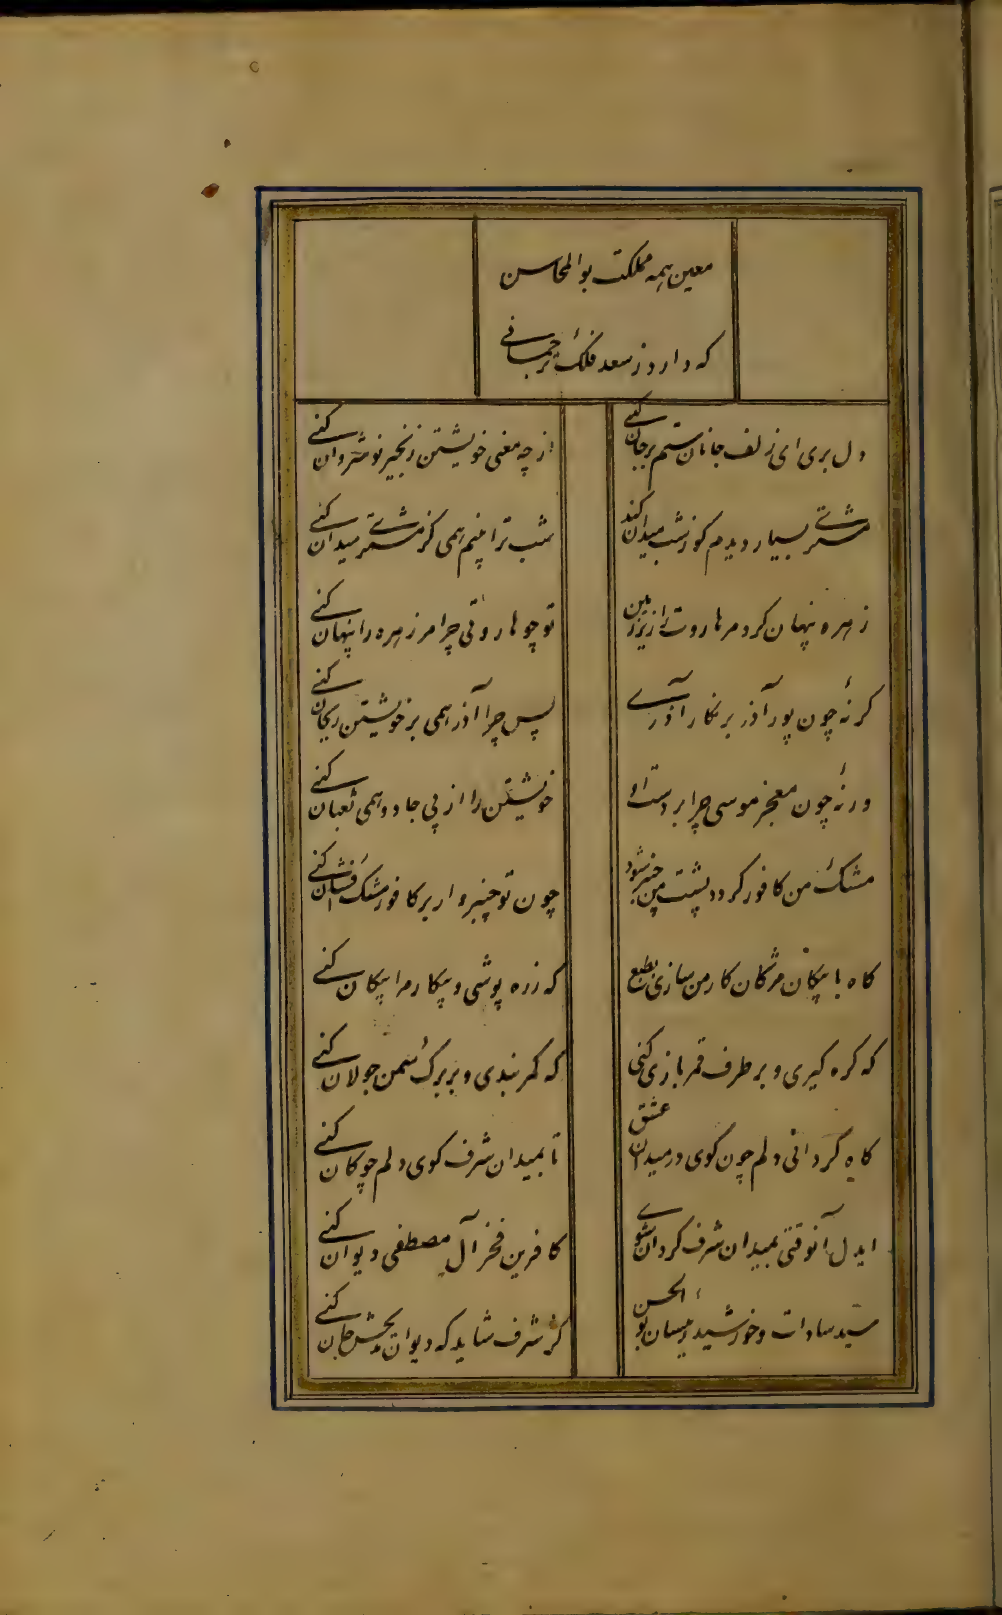 معین همه مملکت بوالمحاسن
که دارد ز سعد فلک ترجمانی
دل بری ای زلف جانان ستم بر جان کنی
از چه معنی خویشتن زنجیر نوشروان کنی
مشتری بسیار دیدم کو ز شب میدان کند
شب ترا بینم همی کز مشتری میدان کنی
زهره پنهان کرد مر هاروت را زیر زمین
تو چو هاروتی چرا مر زهره را پنهان کنی
کر نهٔ چون پور آذر بر نکار آذری
پس چرا آذر همی بر خویشتن ریحان کنی
ور نهٔ چون معجز موسی چرا بر دست او
خویشتن را از پی جادو همی ثعبان کنی
مشک من کافور کردد پشت من چنبر شود
چون تو چنبروار بر کافور مشک افشان کنی
کاه با پیکان مژکان کار من سازی بطبع
که زره پوشی و پیکار مرا پیکان کنی
که کره کیری و بر طرف قمر بازی کنی
که کمر بندی و بر برک سمن جولان کنی
کاه کردانی دلم چون کوی در میدان عشق
تا بمیدان شرف کوی دلم چوکان کنی
ایدل آنوقتی بمیدان شرف کردان شوی
کافرین فخر آل مصطفی دیوان کنی
سید سادات و خورشید رئیسان بوالحسن
کز شرف شاید که دیوان مدیحش جان کنی